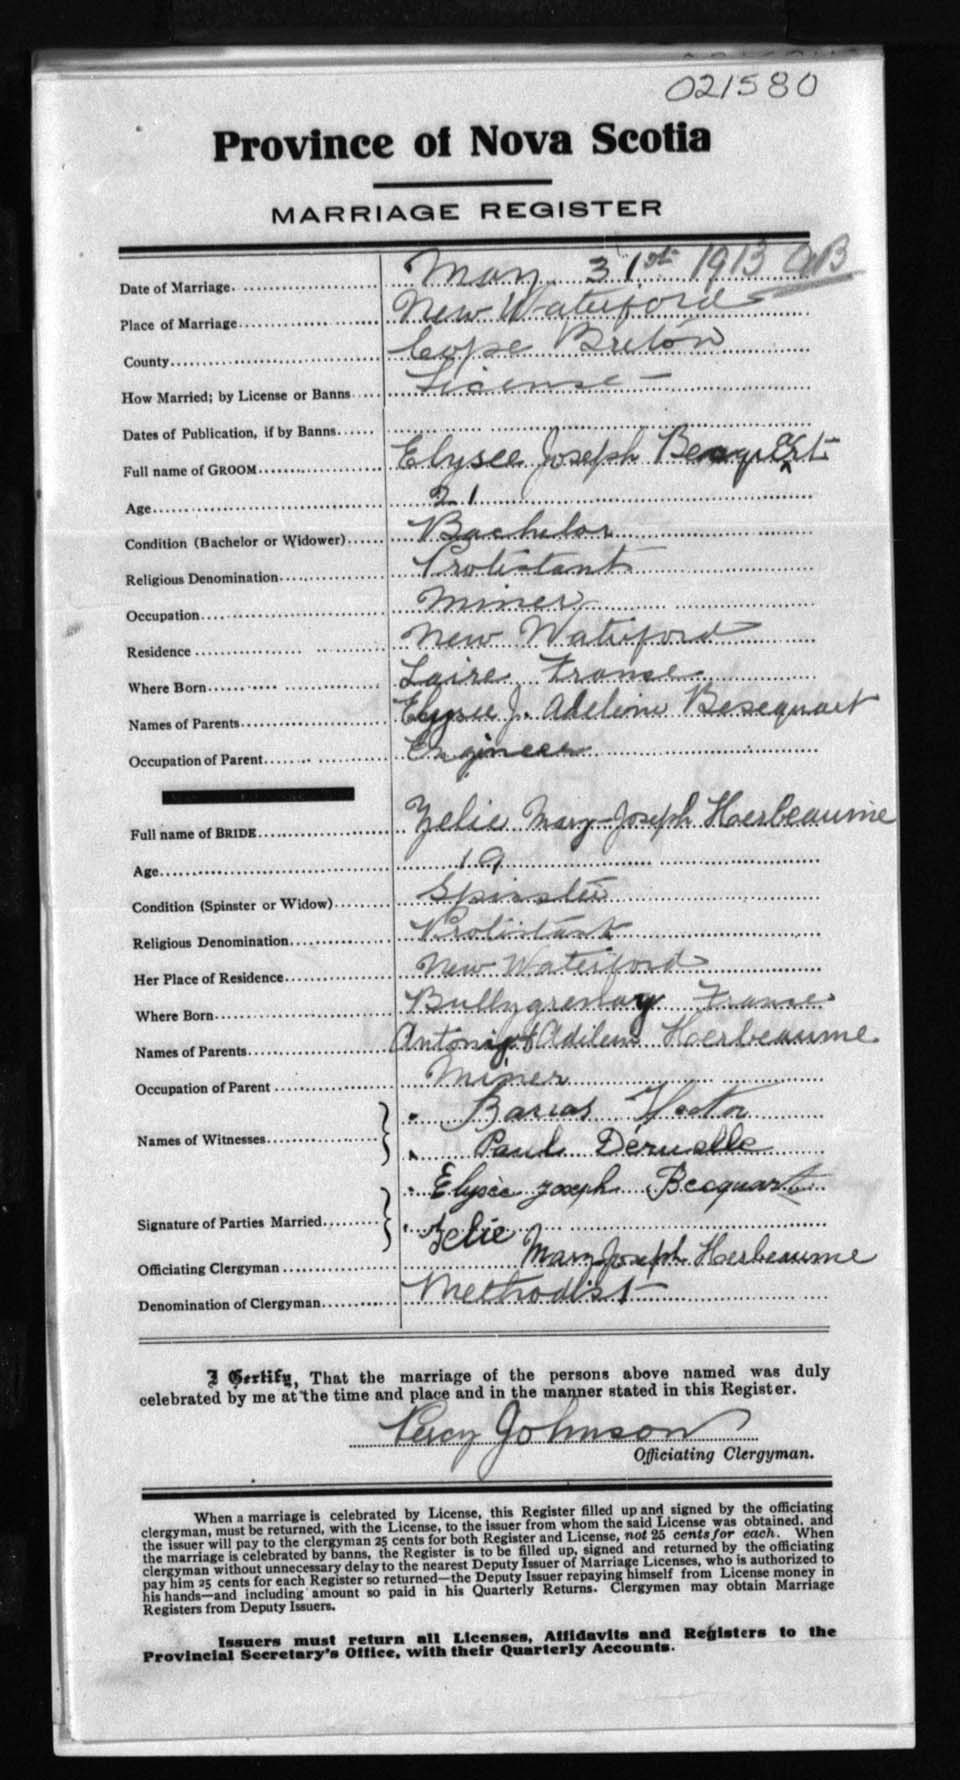 021580
Province of Nova Scotia
MARRIAGE REGISTER
Date of Marriage May 31st 1913 GB
Place of Marriage New Waterford
County Cape Breton
How Married; by License or Banns License
Dates of Publication, if by Banns
Full name of GROOM Elysee Joseph
Age 21
Condition (Bachelor or Widower) Bachelor
Religious Denomination Protistant
Occupation Miner
Residence New Waterford
Where Born Laire Franse
Names of Parents Elysee J. Adeline Besequart
Occupation of Parent Engineer
Full name of BRIDE Zelie Mary Joseph Herbeaume
Age 19
Condition (Spinster or Widow) Spinster
Religious Denomination Protistant
Her Place of Residence New Waterford
Where Born Bullygrenay Franse
Names of Parents Herbeaume
Occupation of Parent Miner
Names of Witnesses Barras Hector
Paul Deruelle
Elysée Joseph Becquart
Signature of Parties Married Zelie
Officiating Clergyman Mary Joseph Herbeaume
Denomination of Clergyman Methodist
I Certify, That the marriage of the persons above named was duly
celebrated by me at the time and place and in the manner stated in this Register.
Percy Johnson
Officiating Clergyman.
When a marriage is celebrated by License, this Register filled up and signed by the officiating
clergyman, must be returned, with the License, to the issuer from whom the said License was obtained, and
the issuer will pay to the clergyman 25 cents for both Register and License, not 25 cents for each. When
the marriage is celebrated by banns, the Register is to be filled up, signed and returned by the officiating
clergyman without unnecessary delay to the nearest Deputy Issuer of Marriage Licenses, who is authorized to
pay him 25 cents for each Register so returned—the Deputy Issuer repaying himself from License money in
his hands—and including amount so paid in his Quarterly Returns. Clergymen may obtain Marriage
Registers from Deputy Issuers.
Issuers must return all Licenses, Affidavits and Registers to the
Provincial Secretary's Office, with their Quarterly Accounts.